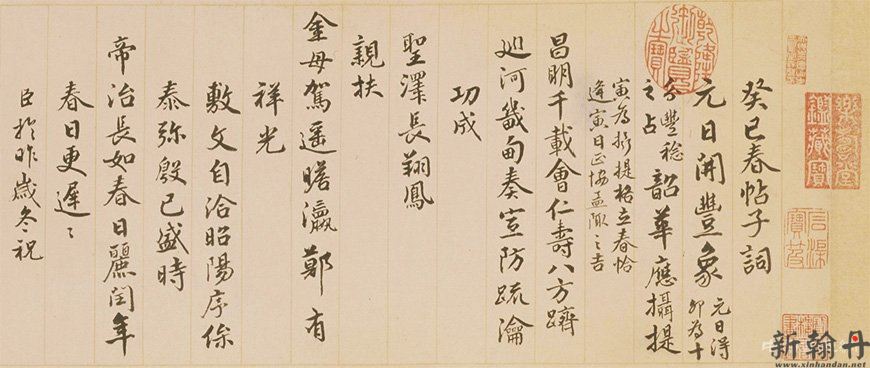 癸巳春帖子詞
元日開豐象
元日得
卯為十
分豐稔
之占
韶華應攝提
寅為提格立春恰
逢寅日正協孟陬之吉
昌明千載會仁壽八方躋
巡河畿甸奏宣防疏瀹
功成
聖澤長翔鳳
親扶
金母駕遥瞻瀛鄚有
祥光
敷文自洽昭陽序保
泰弥殷已盛時
帝治長如春日麗閏年
春日更遲〻
臣於昨歲冬祝
乾隆御覽之寶
樂壽堂
鑑藏寶
新翰丹
www.xinhandan.net